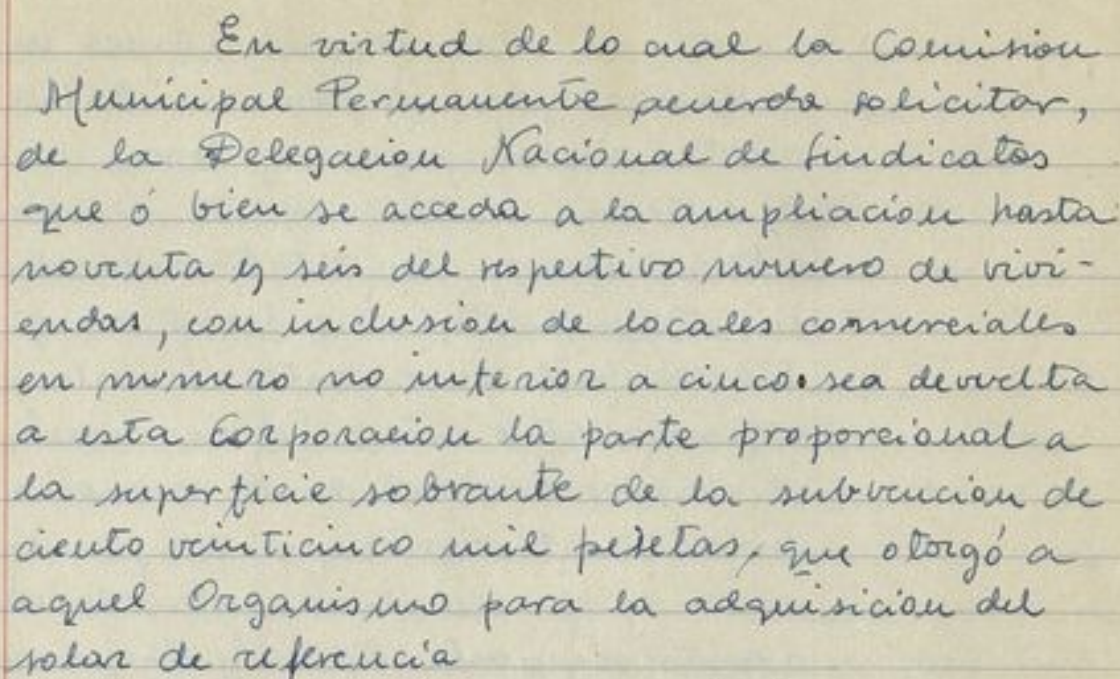 En virtud de lo cual la Comision
Municipal Permanente acuerda solicitar,
de la Delegacion Nacional de Sindicatos
que ó bien se acceda a la ampliacion hasta
noventa y seis del respectivo numero de vivi-
endas, con inclusion de locales comerciales
en numero no inferior a cinco o sea devuelta
a esta Corporacion la parte proporcional a
la superficie sobrante de la subvencion de
ciento veinticinco mil pesetas, que otorgó a
aquel Organismo para la adquisicion del
solar de referencia